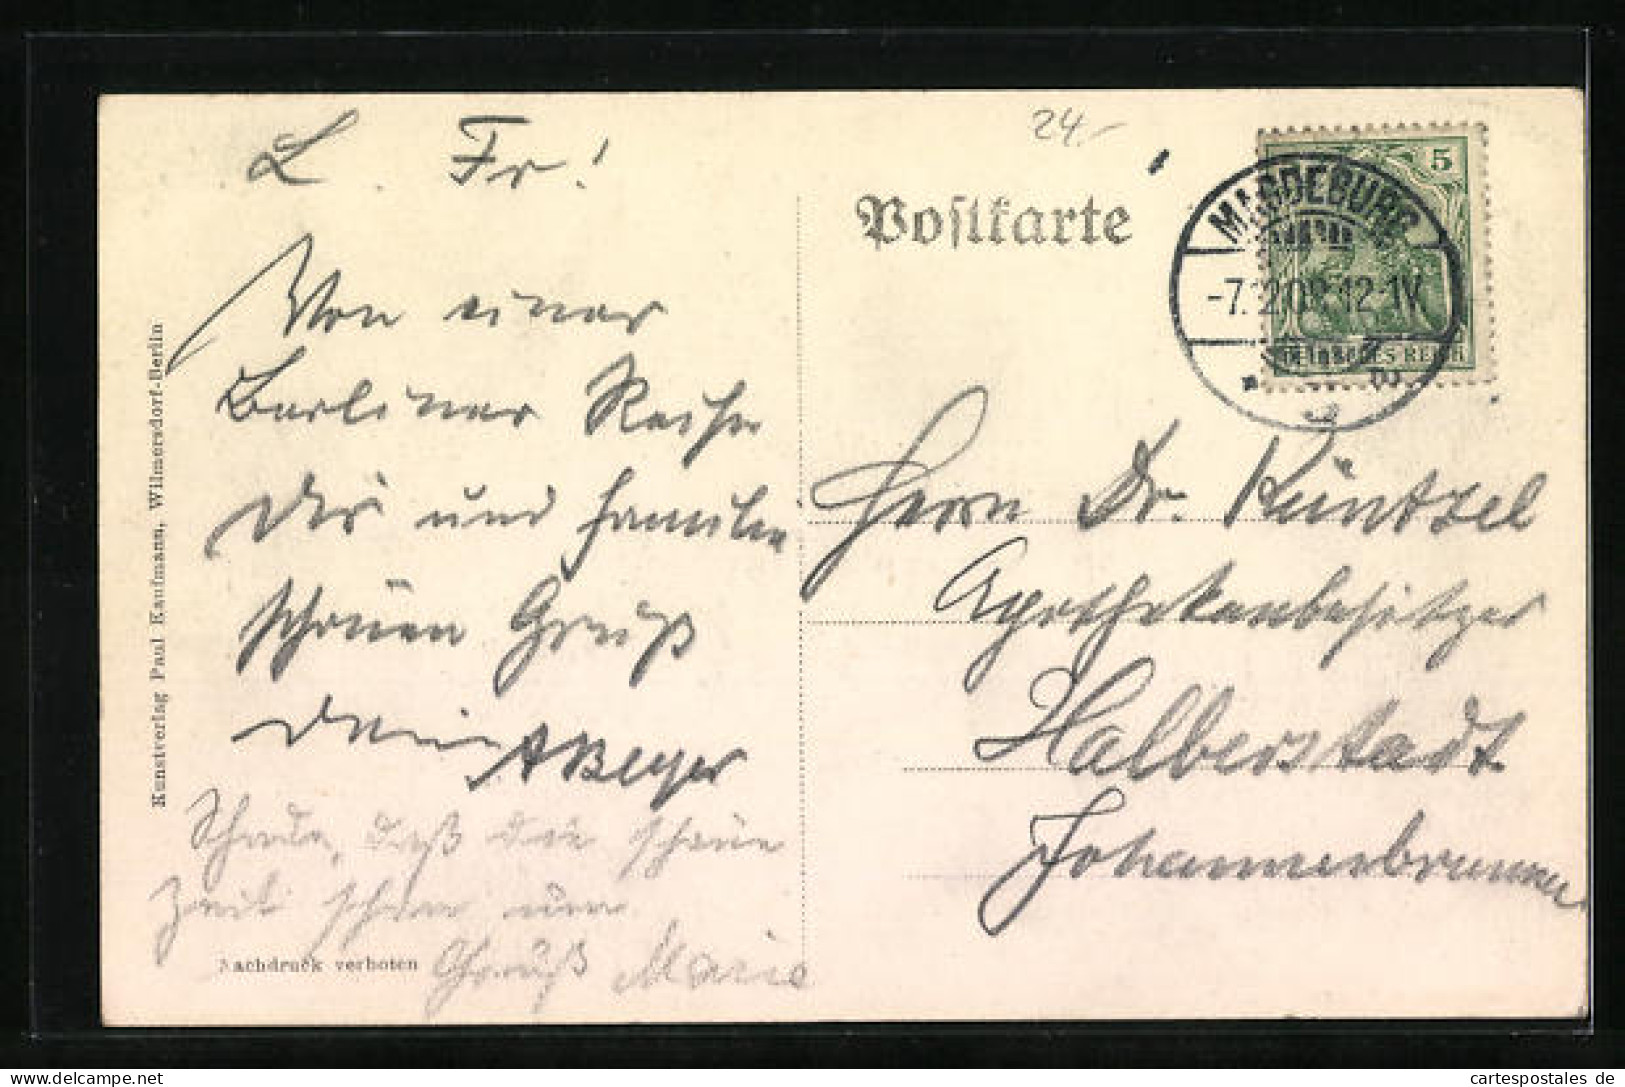 L. Fr!
Von einer
Berliner Reise
Dir und Familie
schönen Gruß
Dein ABeyer
Schade, daß die schöne
Zeit schon um.
Gruß Marie
Nachdruck verboten
Kunstverlag Paul Kaufmann, Wilmersdorf-Berlin
24.-
Postkarte
MAGDEBURG
12-1V.
5
DEUTSCHES REICH
Herrn Dr. Küntzel
Apothekenbesitzer
Halberstadt.
Johannesbrunnen
cartespostales de